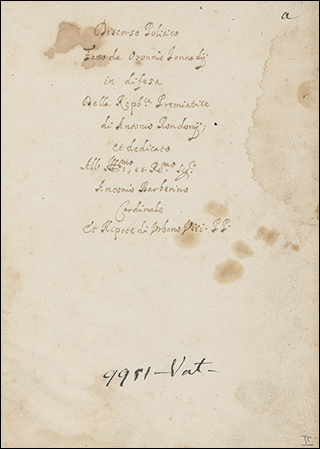 a
Discorso Politico
Fatto da Oronnio Jonnadij
in difesa
Della Repb.ca Premiatite
di Antonio Rondonij,
et dedicato
All' Ill.mo, et R.mo Sig.r
Antonio Barberino
Cardinale
Et Nipote di Urbano Viij. PP.
9951-Vat-
II